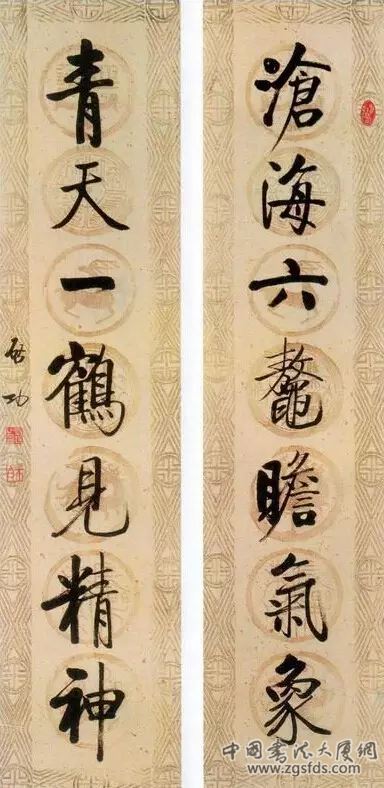 滄海六鼇瞻氣象
青天一鶴見精神
啟功
中國書法大廈網
www.zgsfds.com